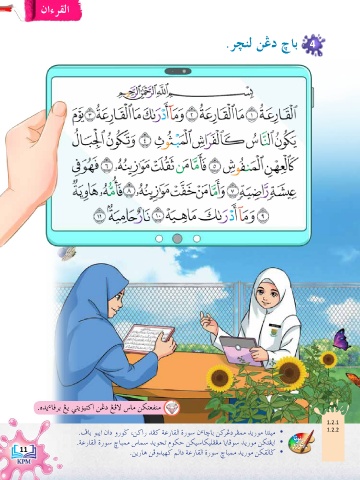 القرءان
4 باچ دڠن لنچر.
بِسْمِ اللَّهِ الرَّحْمَنِ الرَّحِيمِ
الْقَارِعَةُ ١ مَا الْقَارِعَةُ ٢ وَمَآ أَدْرَىٰكَ مَا الْقَارِعَةُ ٣ يَوْمَ
يَكُونُ النَّاسُ كَالْفَرَاشِ الْمَبْثُوثِ ٤ وَتَكُونُ الْجِبَالُ
كَالْعِهْنِ الْمَنفُوشِ ٥ فَأَمَّا مَن ثَقُلَتْ مَوَازِينُهُۥ ٦ فَهُوَ فِى
عِيشَةٍ رَّاضِيَةٍ ٧ وَأَمَّا مَنْ خَفَّتْ مَوَازِينُهُۥ ٨ فَأُمُّهُۥ هَاوِيَةٌ
٩ وَمَآ أَدْرَىٰكَ مَا هِيَهْ ١٠ نَارٌ حَامِيَةٌ ١١
منفعتكن ماس لاڤڠ دڠن اكتيۏيتي يڠ برفائيده.
• مينتا موريد ممڤردڠركن باچاءن سورة القارعة كڤد راكن، ݢورو دان ايبو باڤ.
• ايڠتكن موريد سوڤايا مڠاپليكاسيكن حكوم تجويد سماس ممباچ سورة القارعة.
• ݢالقكن موريد ممباچ سورة القارعة دالم كهيدوڤن هارين.
1.2.1
1.2.2
11
KPM